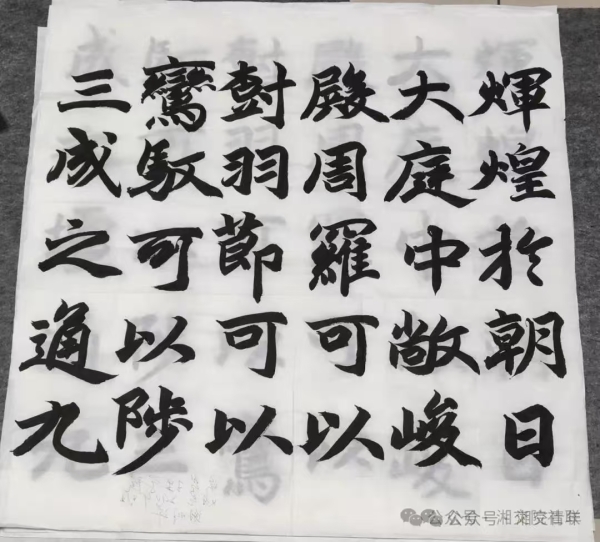 煇煌於朝日
大庭中敞峻
殿周羅可以
尌羽節可以
鸞馭可以陟
三成之通九
公众号